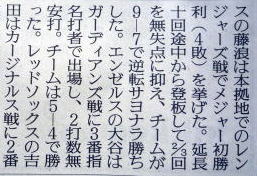 スの藤浪は本拠地でのレン
ジャーズ戦でメジャー初勝
利（4敗）を挙げた。延長
十回途中から登板して⅔回
を無失点に抑え、チームが
9―7で逆転サヨナラ勝ち
した。エンゼルスの大谷は
ガーディアンズ戦に3番指
名打者で出場し、2打数無
安打。チームは5―4で勝
った。レッドソックスの吉
田はカージナルス戦に2番